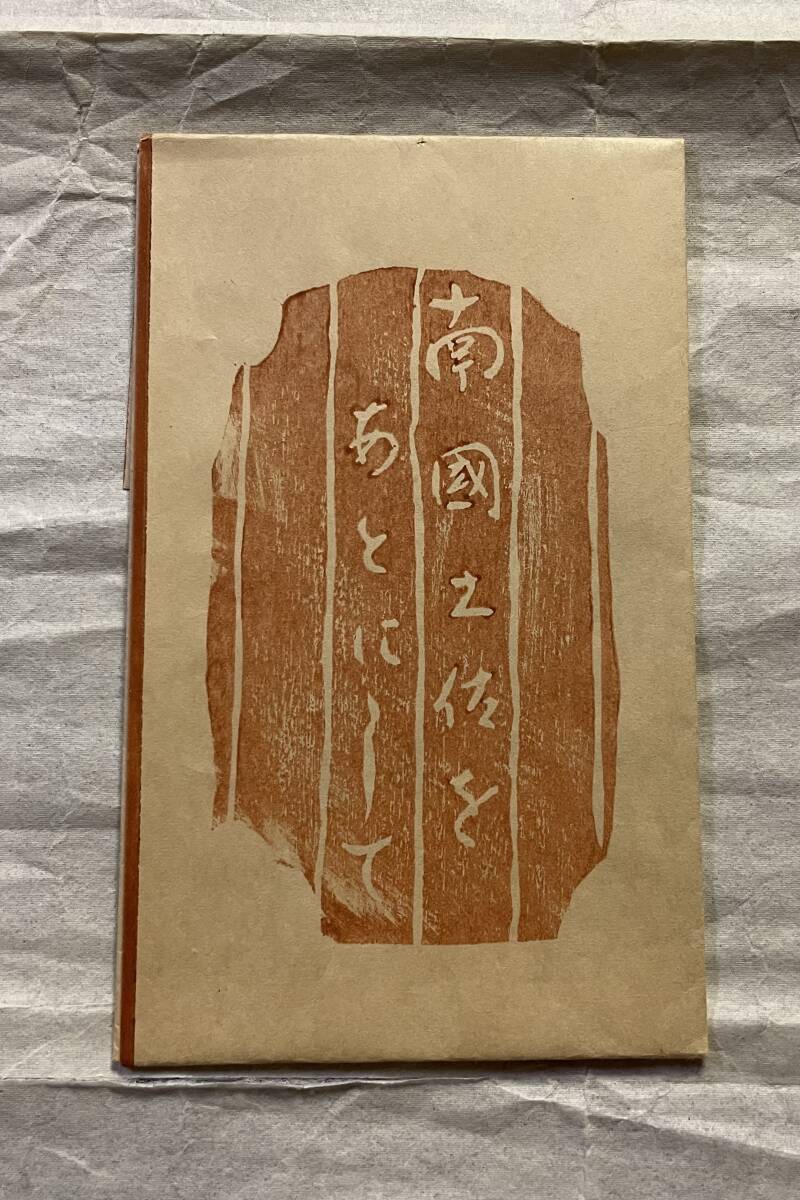 南國土佐を
あとにして